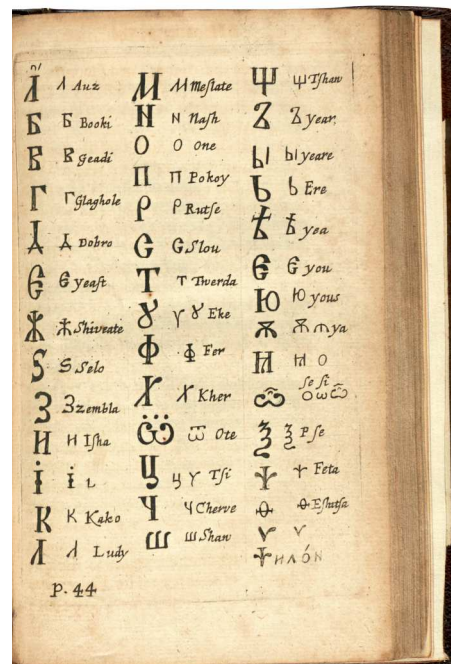 А҆ А Auz
Б Б Booki
В В Geadi
Г Г Glaghole
Д Д Dobro
Є Є yeast
Ж Ж Shiveate
Ѕ Ѕ Selo
З З zembla
И И Isha
і і ι
К К Kako
Л Л Ludy
М М Meslate
N N Nash
О О One
П П Pokoy
Р Р Rutse
С С Slou
Т Т Twerda
Ꙋ Ꙋ Eke
Ф Ф Fer
Х Х Kher
Ѿ Ѿ Ote
Ц Ц Tsi
Ч Ч Cherve
Ш Ш Shaw
Щ Щ Tshaw
Ъ Ъ year
Ы Ы yeare
Ь Ь Ere
Ѣ Ѣ yea
Є Є you
Ю Ю yous
Ѫ Ѫ ya
Ѯ Ѯ Pse
Ѱ Ѱ Feta
Ѳ Ѳ Eshutsa
Ѵ Ѵ
ѰИЛО́Н
P. 44